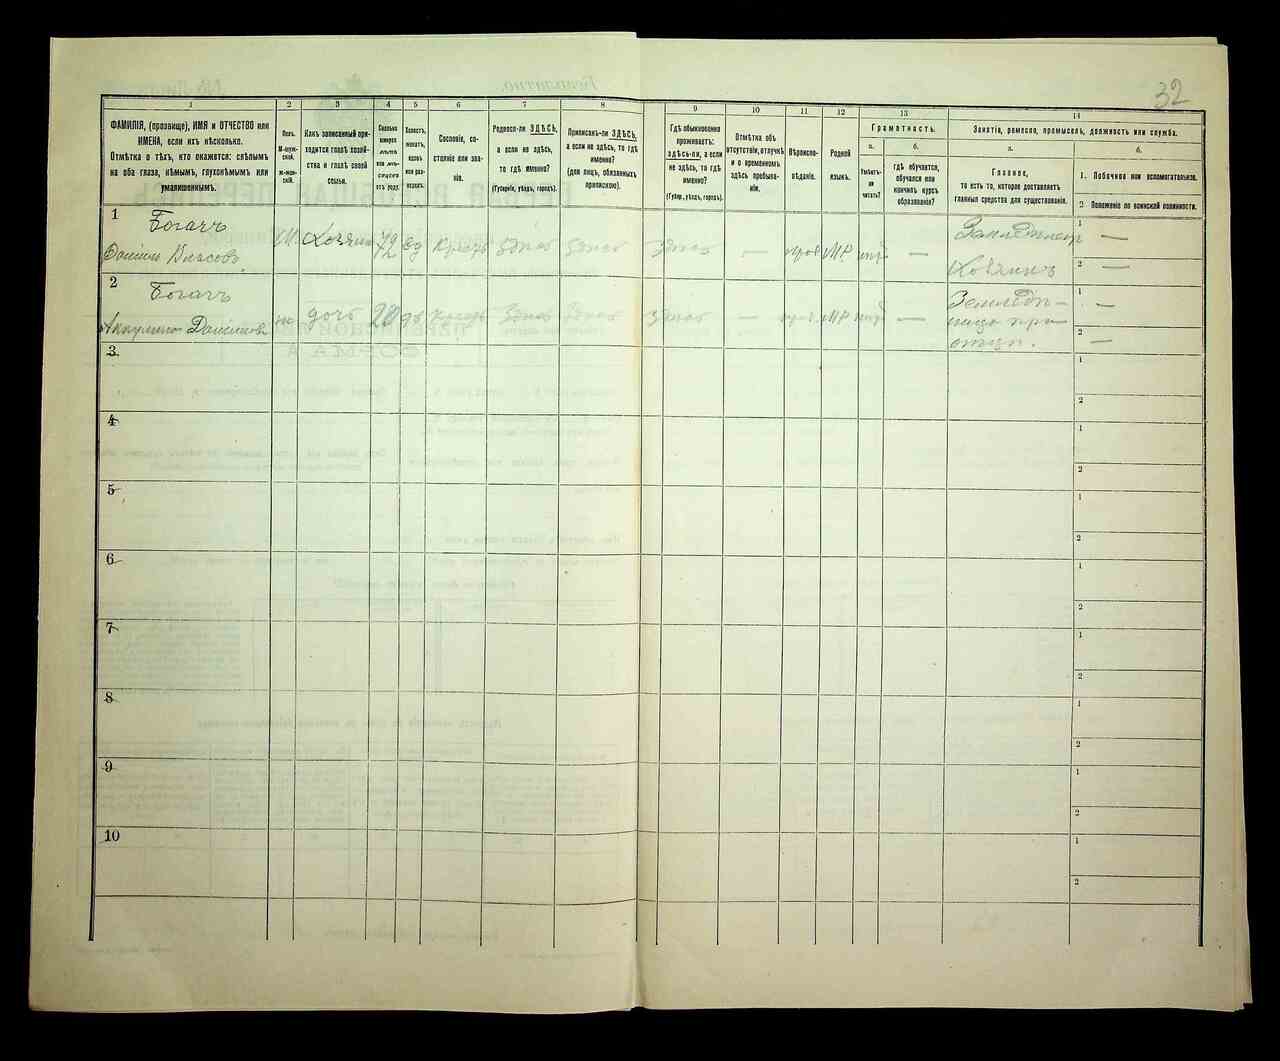 32
1
2
3
4
5
6
7
8
9
10
11
12
13
14
ФАМИЛІЯ, (прозвище), ИМЯ и ОТЧЕСТВО или
ИМЕНА, если ихъ нѣсколько.
Отмѣтка о тѣхъ, кто окажется: слѣпымъ
на оба глаза, нѣмымъ, глухонѣмымъ или
умалишеннымъ.
Полъ.
М-муж-
ской.
ж-жен-
скій.
Какъ записанный при-
ходится главѣ хозяй-
ства и главѣ своей
семьи.
Сколько
минуло
лѣтъ
или мѣ-
сяцевъ
отъ роду.
Холостъ,
женатъ,
вдовъ
или раз-
веденъ.
Сословіе, со-
стояніе или зва-
ніе.
Родился-ли ЗДѢСЬ,
а если не здѣсь,
то гдѣ именно?
(Губернія, уѣздъ, городъ).
Приписанъ-ли ЗДѢСЬ,
а если не здѣсь, то гдѣ
именно?
(для лицъ, обязанныхъ
припискою).
Гдѣ обыкновенно
проживаетъ:
здѣсь-ли, а если
не здѣсь, то гдѣ
именно?
(Губер., уѣздъ, городъ).
Отмѣтка объ
отсутствіи, отлучкѣ
и о временномъ
здѣсь пребыва-
ніи.
Вѣроиспо-
вѣданіе.
Родной
языкъ.
Грамотность.
а.
б.
Умѣетъ-
ли
читать?
гдѣ обучается,
обучался или
кончилъ курсъ
образованія?
Занятіе, ремесло, промыселъ, должность или служба.
а.
б.
Главное,
то есть то, которое доставляетъ
главныя средства для существованія.
1. Побочное или вспомогательное.
2 Положеніе по воинской повинности.
1
Богачъ
Данило Власовъ
М. Хозяинъ 72 вд крест здѣсь здѣсь здѣсь — прав МР нѣтъ —
Хозяинъ
1 —
2 —
2
Богачъ
Аккулина Данилова
ж дочь дѣ крест здѣсь здѣсь здѣсь — прав. МР нѣтъ —
при
отцѣ.
1 —
2 —
3
1
2
4
1
2
5
1
2
6
1
2
7
1
2
8
1
2
9
1
2
10
1
2